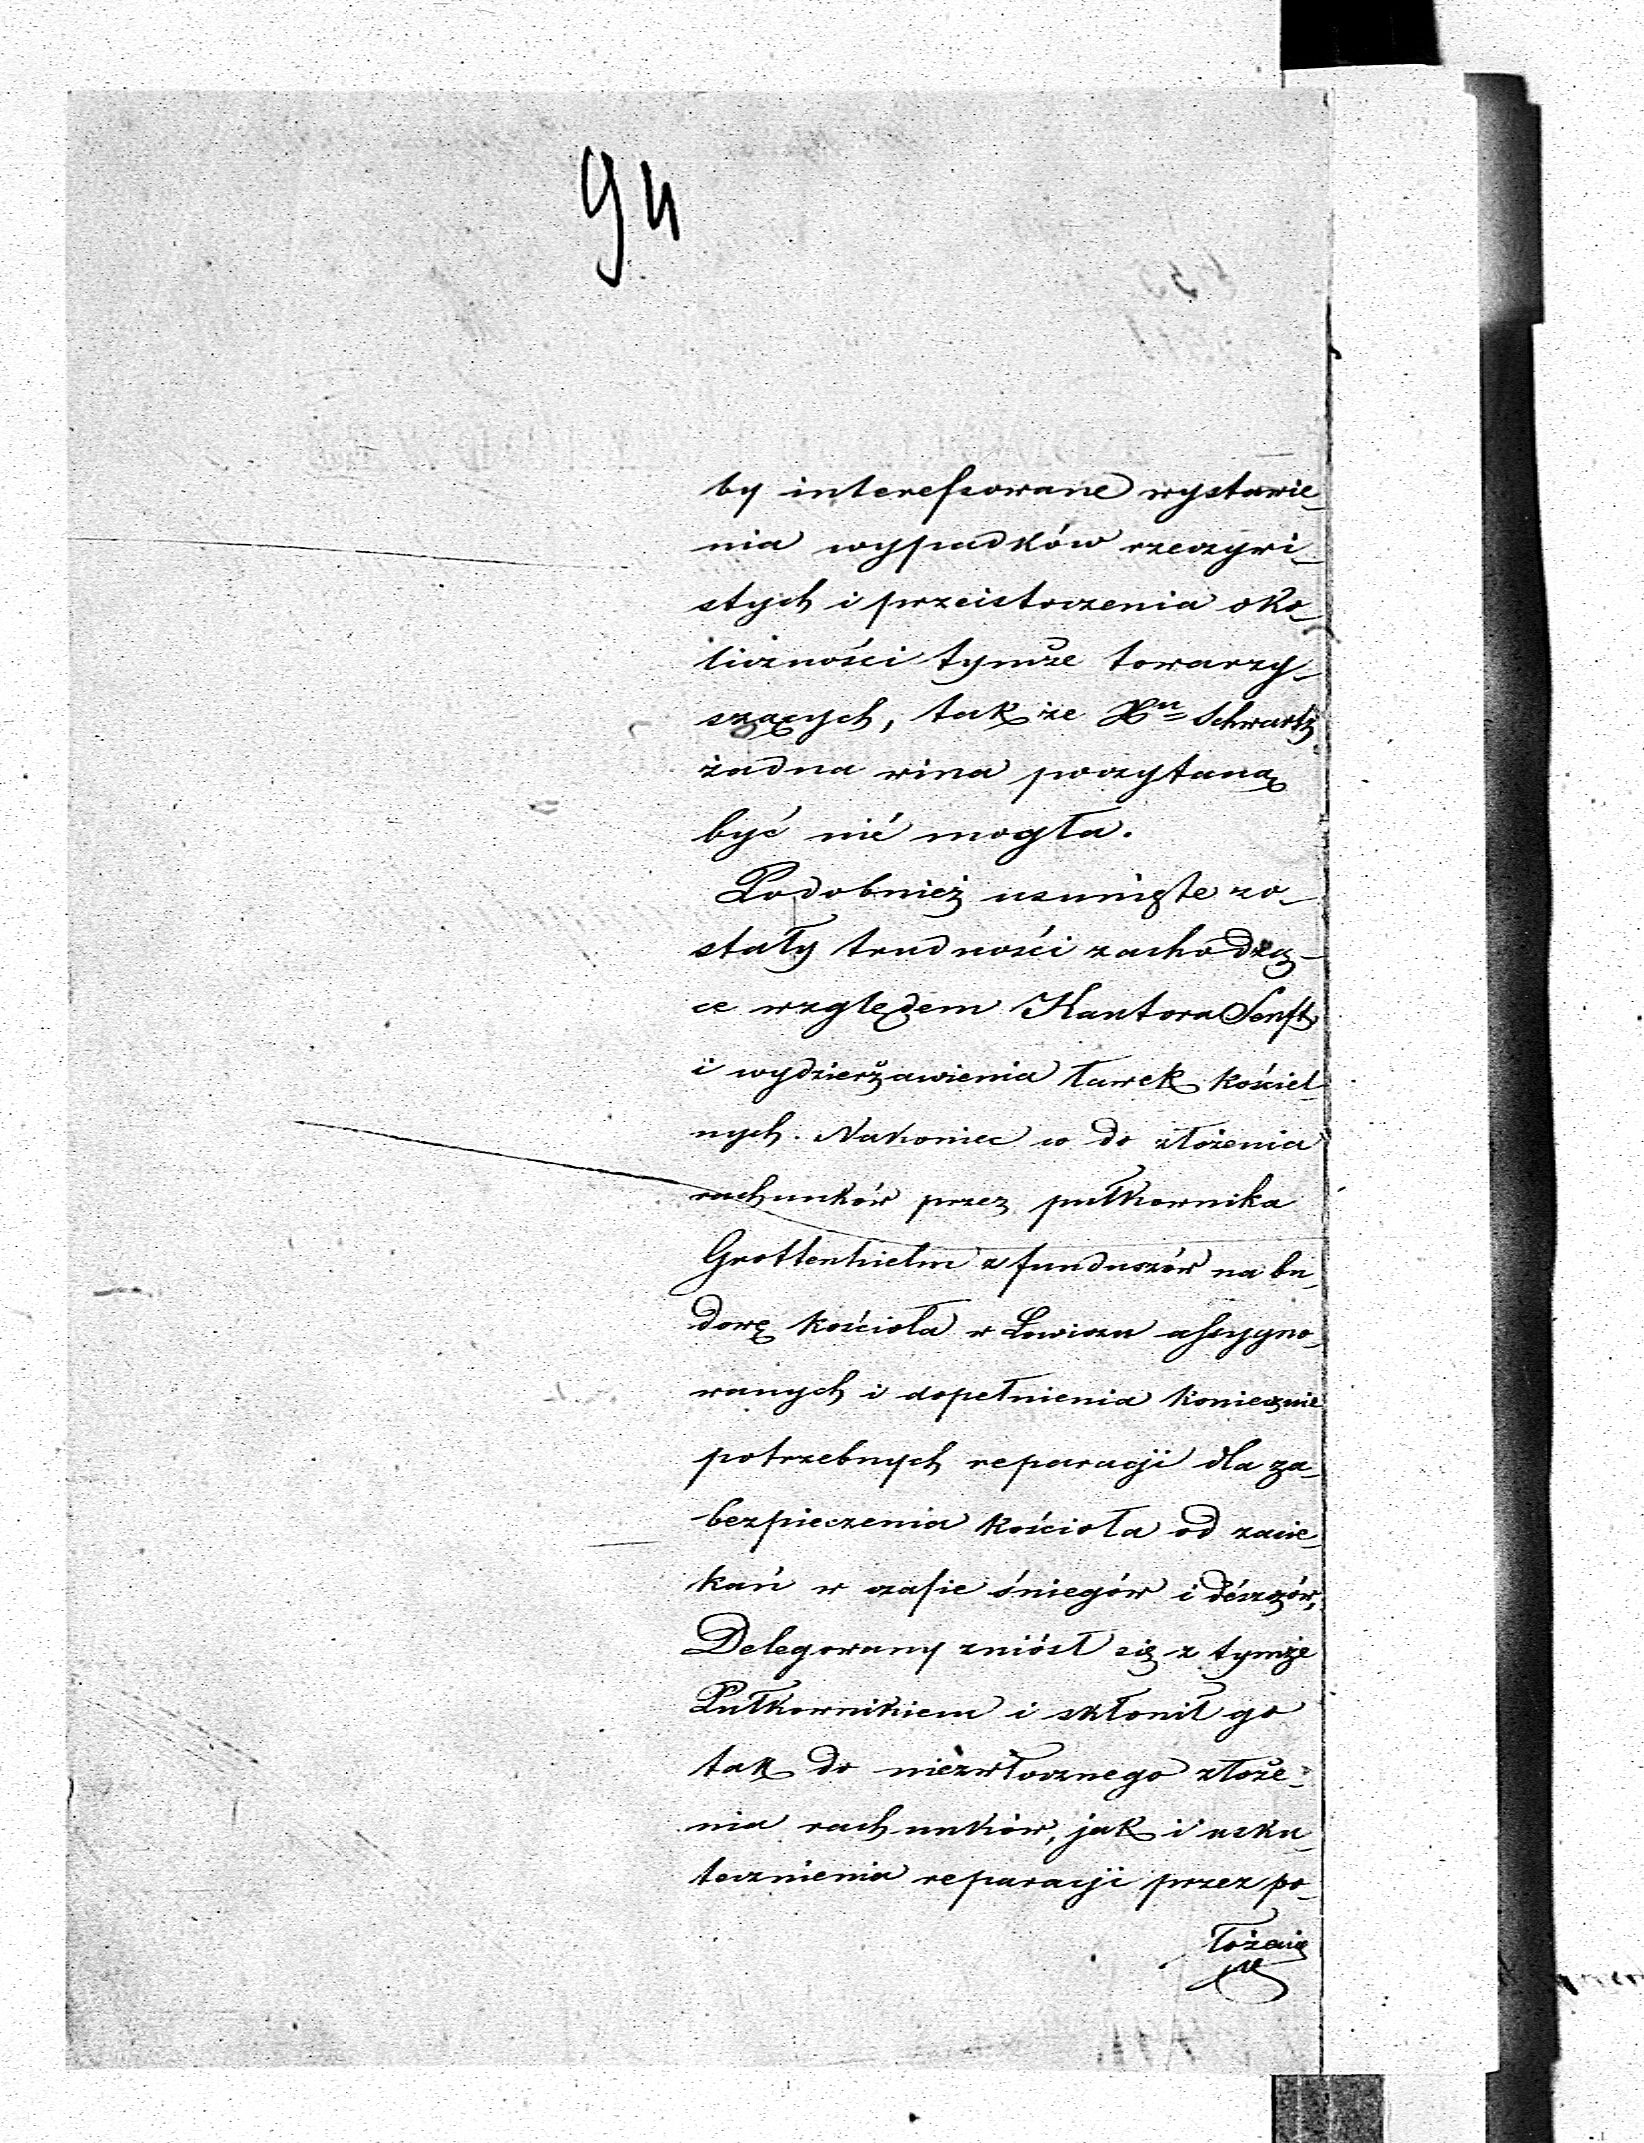 94
by interessowane wystawie-
nia wypadków rzeczywi-
stych i przeistoczenia oko-
liczności tymże towarzy-
szących, tak że Xu Schwartz
żadna wina poczytaną
być nié mogła.
Podobnież usunięte zo-
stały trudności zachodzą-
ce względem Kantora Senft,
i wydzierżawienia ławek kościel
nych. Nakoniec co do złożenia
rachunków przez pułkownika
Grottenhielm z funduszów na bu-
dowę kościoła w Łowiczu assygno-
wanych i dopełnienia koniecznie
potrzebnych reparacji dla za-
bezpieczenia kościoła od zacie-
kań w czasie śniegów i désczów,
Delegowany zniósł się z tymże
Pułkownikiem i skłonił go
tak do niezwłocznego złoże-
nia rachunków, jak i usku-
tecznienia reparacji przez po-